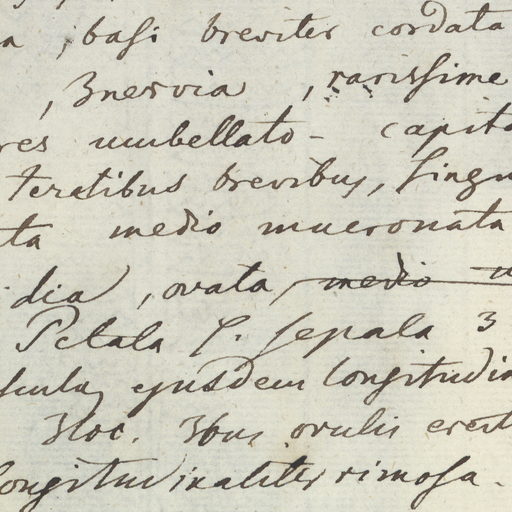 a ; basi breviter cordata
, 3nervia , rarissime
res umbellato- capit
teretibus brevibus, singu
ta medio mucronata
dia , ovata, medio
Petala s. sepala 3
ejusdem longitudi
3loc. 3bus ovulis erect
longitudinaliter rimosa.